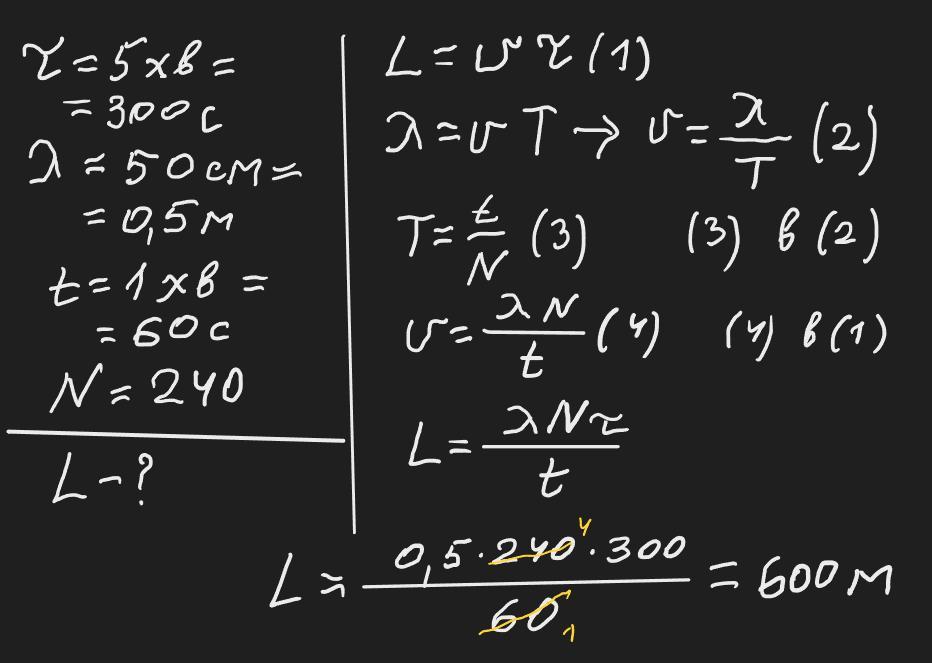 τ = 5 хв =
= 300 с
λ = 50 см =
= 0,5 м
t = 1 хв =
= 60 с
N = 240
L - ?
L = υ τ (1)
λ = υ T → υ = λ/T (2)
T = t/N (3) (3) в (2)
υ = λN/t (4) (4) в (1)
L = λNτ/t
L = 0,5 · 240 4 · 300 / 60 1 = 600 м